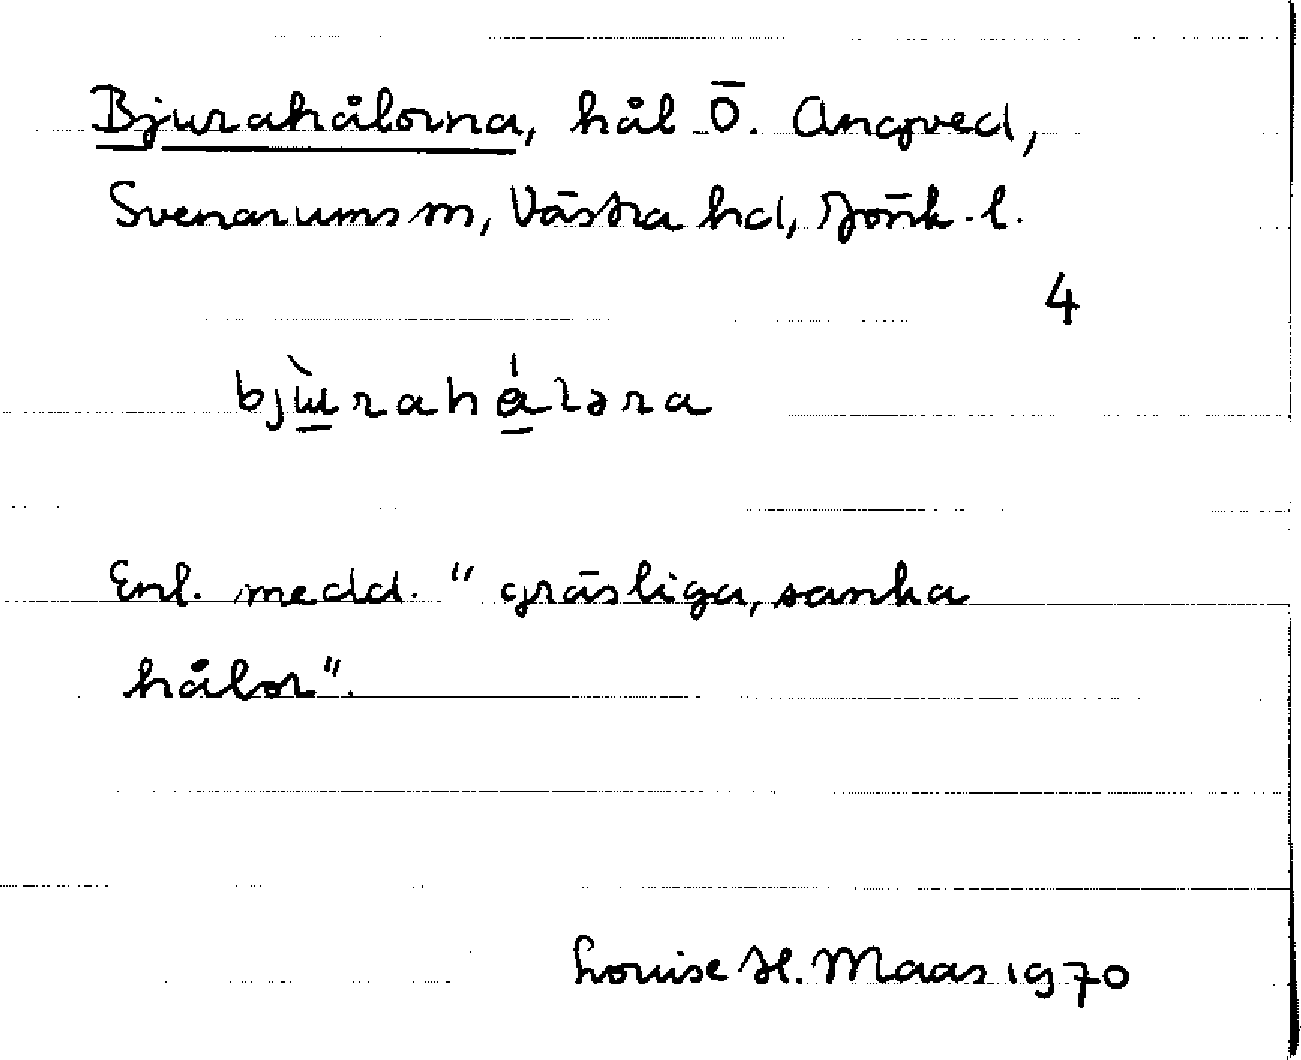 Bjurahålorna, hål Ö. Angved,
Svenarums sn, Västra hd, Jönk. l.
4
bjɯ̀rahálɘra
Enl. medd. "gräsliga, sanka
hålor".
Louise H. Maas 1970